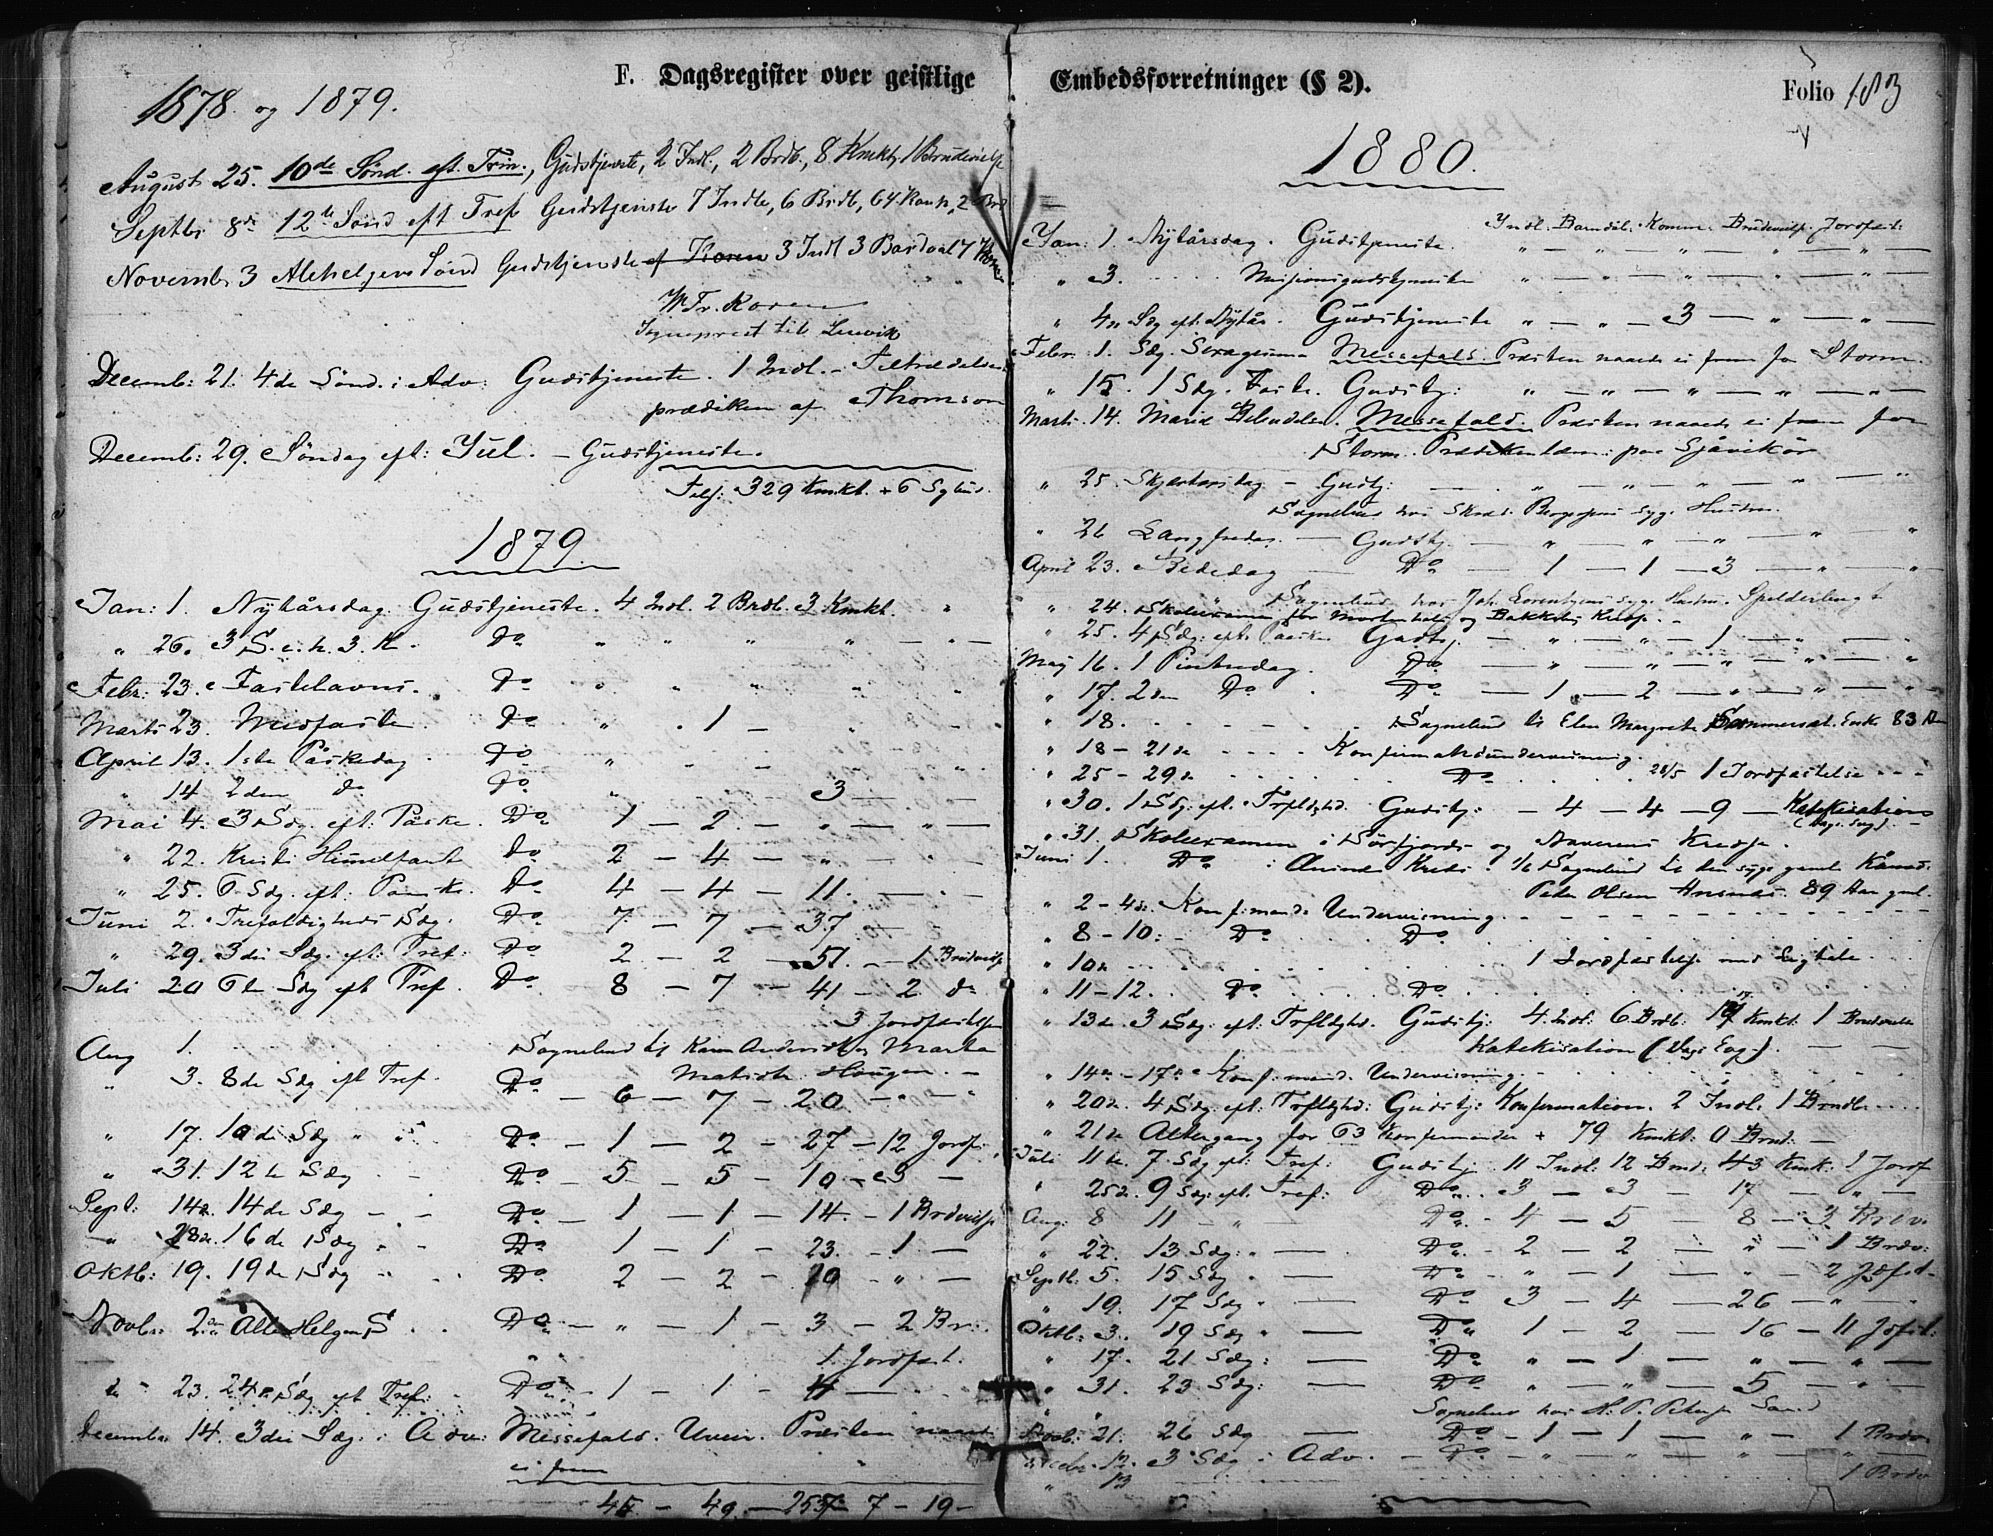 F. Dagsregister over geistlige
1878 og 1879.
August 25. 10de Sønd. eft. Trin., Gudstjenste, 2 Indl., 2 Brdb., 8 Kmkt, 1 Brudevielse
Septbr 8de 12te Sønd eft Tref Gudstjenste 7 Indle, 6 Brdb, 64 Komk, 2 Brd
Novembr 3 Alehelgens Sønd Gudstjenste af Koren 3 Indl 3 Bardaab 7
W. Fr. Koren
Sogneprest til Lenvik
Decemb: 21. 4de Sønd. i Adv: Gudstjeneste. 1 Indl. – Tiltrædelses
prædiken af Thomson
Decemb: 29. Søndag eft: Jul. – Gudstjeneste.
Tils: 329 Kmkt. + 6 Sgbud.
1879.
Jan: 1. Nytårsdag. Gudstjeneste. 4 Indl. 2 Brdb. 3 Kmkt. "
" 26. 3 S. e. h. 3. K. Do " " " " – " –
Febr: 23. Fastelavns. Do " " " " "
Marts 23. Midfaste. Do " 1 – " –
April 13. 1ste Påskedag. Do " " –
" 14 2den do Do " 3 –
Mai 4. 3 Sdg. eft: Påske. Do 1 – 2 – " – " –
" 22. Kristi Himmelfart Do 2 – 4 – " –
" 25. 6. Sdg. eft: Påske. Do 4 – 4 – 11. –
Juni 2. Trefoldigheds Sdg. Do 7 – 7 – 37. –
" 29. 3die Sdg. eft: Tref: Do 2 – 2 – 51. – 1 Brudevielse
Juli 20 6te Sdg eft Tref. Do 8 – 7 – 41 – 2 do
3 Jordfæstelser
Aug 1. Sognebud til Karen Andersd. & Marta
Matisdr. Haugen. –
" 3. 8de Sdg eft Tref. Do – 6 – 7 – 20 – " –
" 17. 10de Sdg " " Do – 1 – 2 – 27 – 12 Jordf.
" 31. 12te Sdg – Do – 5 – 5 – 10 – 3 –
Sept: 14de. 14de Sdg – – Do – 1 – 1 – 14. – 1 Brdvielse
" 28de. 16de Sdg " – Do 1 – 1 – 23. – 1 –
Oktb: 19. 19de Sdg " Do 2 – 2 – 10 – " –
Novbr: 2den Alle Helgen S. Do – " – 1 – 3 – 2 Br:
1. Jordfæst.
" 23. 24de Sdg eft Tref: Do – 1 – 1 – 4 –
Decembr 14. 3die Sdg. i Adv: Messefald. Uveir. Præsten naaede
ei frem
45 – 49 – 257 – 7 – 19 –
Embedsforretninger (§ 2).
Folio 183
1880.
Indl. Barndåb. Komm. Brudevielse. Jordfæst:
Jan: 1. Nytårsdag. Gudstjeneste. " – " – " – " – " –
" 3. Missionsgudstjeneste " – " – " – " – " –
" 4de Sdg eft Nytår. Gudstjeneste " – " – 3 – " – " –
Febr: 1. Sdg. Sexagesima Messefald. Præsten naaede ei frem for Storm.
" 15. 1 Sdg. Faste. Gudstj: " – " – " – " – " –
Marts 14. Mariæ Bebudelse. Messefald. Præsten naaede ei frem for
Storm. Prædiken læm: paa Gjøvikør
" 25. Skjærtorsdag – Gudtj: – " – " – " – " – "
Sognebud hos Syge Hustru.
" 26 Langfredag. – Gudstj. – " – " – " – " – "
April 23. Bededag – Do – 1 – 1 – 3 – " – "
" Sognebud hos Joh. Lorentzens syge Hustru. Spelderbugt
" 24. Skolexamen for Mortenhals og Bakkeby Kredse. –
" 25. 4 Sdg: eft: Påske Gudtj. – " – " – 1 – " –
Maj 16. 1 Pintsedag. Do – " – " – " – " – "
" 17. 2den Do. Do – 1 – 2 – " – " – " –
" 18. Sognebud til Elen Margrete Enke 83 Aar
" 18 – 21de Konfirmationsundervisning.
" 25 – 29de Do 28/5 1 Jordfæstelse – –
" 30. 1 Sdg. eft. Trfldghd. Gudstj: – 4 – 4 – 9 – Katekisation
" 31. Skolexamen i Sørfjords og Navarens Kredse.
Juni 1. Do i Kreds. 1/6 Sognebud til den syge gamle
Peder Olsen 89 Aar gml.
" 2 – 4de. Konfirmands Undervisning.
" 8 – 10: – Do Do
" 10de 1 Jordfæstelse med Ligtale.
" 11 – 12. Do Do
" 13de. 3 Sdg: eft: Trfldghd. Gudstj: 4. Indl: 6 Brdb: 17 Kmkt: 1 Brudevielse
Katekisation ( ). – –
" 14de – 17de Konfirmand. Undervisning.
" 20de. 4 Sdg. eft: Trfldghd: Gudstj: Konfirmation. 2 Indl: 1 Brndb.
" 21de Altergang for 63 Konfirmander + 79 Kmkt: 0 Brnd: –
Juli 11te. 7. Sdg eft: Tref: Gudstj: 11 Indl. 12 Brnd. 43 Kmk: 1 Jordf
" 25de. 9 Sdg: eft. Tref: Do. – 3 – 3 – 17 – " –
Aug: 8 11 – " – Do. – 4 – 5 – 8 – 3 Brdv.
" 22. 13 Sdg: " – Do. – 2 – 2 – " – 1 Brdv:
Septb. 5. 15 Sdg " – Do – " – 1 – " – 2 Jdfst.
" 19. 17 Sdg " – Do 3 – 4 – 26 – " –
Oktb: 3. 19 Sdg " – Do 1 – 2 – 16 – 11 Jdfst:
" 17. 21 Sdg: – Do " – 1 – " – " –
" 31. 23 Sdg: – Do " – " – 5 – " –
Sognebud hos H. P. Sand
Novb: 21. 26 Sdg – Do – 1 – 1 – " – 1 Brdv.
Decbr. 12. 3 Sdg i Adv. – Do – " – " – " – " –
" 13 – 1 Brdv